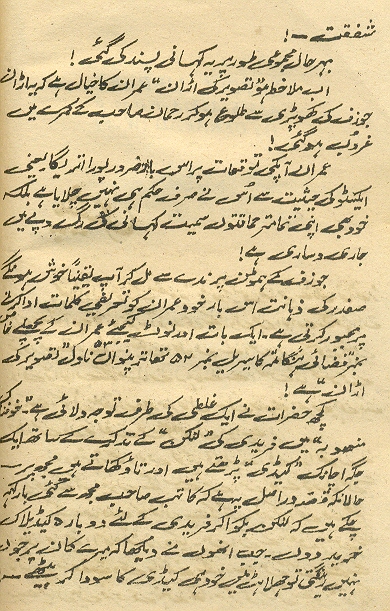 شفقت ۔۔!
بہر حال مجموعی طور پر یہ کہانی پسند کی گئی!
اب ملاحظہ ہو "تصویر کی اڑان" عمران کا خیال ہے کہ یہ اڑان
جوزف کی کھوپڑی سے طلوع ہو کر رحمان صاحب کے کمرے میں
غروب ہو گئی!
عمران آپکی توقعات پر اس بار ضرور پورا اتریگا یعنی
ایکسٹو کی حیثیت سے اس نے صرف حکم ہی نہیں چلایا ہے بلکہ
خود بھی اپنی تمامتر حماقتوں سمیت کہانی کی رگ و پے میں
جاری و ساری ہے!
جوزف کے ہموطن پرندے سے مل کر آپ یقیناً خوش ہونگے
صفدر کی ذہانت اس بار خود عمران کو تعریفی کلمات ادا کرنے
پر مجبور کرتی ہے۔ ایک بات اور نوٹ کیجئے عمران کے پچھلے خاص
نمبر "فضائی ہنگامہ" کا سیریل نمبر ۵۲ تھا ترپنواں ناول "تصویر کی
اڑان" ہے!
کچھ حضرات نے ایک غلطی کی طرف توجہ دلائی ہے "خونناک
منصوبہ" میں فریدی کی "لنکن" کے تذکرے کے ساتھ ایک
جگہ اچانک "کیڈی" پڑھتے ہیں اور تاؤ کھاتے ہیں مجھ پر۔۔
حالانکہ قصہ دراصل یہ ہے کہ کاتب صاحب مجھ سے کئی بار کہہ
چکے ہیں کہ لنکن بکوا کر فریدی کے لئے دوبارہ کیڈیلاک
خرید دوں۔ جب انھوں نے دیکھا کہ میرے کان پر جوں
نہیں رینگتی تو جھلاہٹ میں خود ہی کیڈی کا سودا کر بیٹھے۔۔